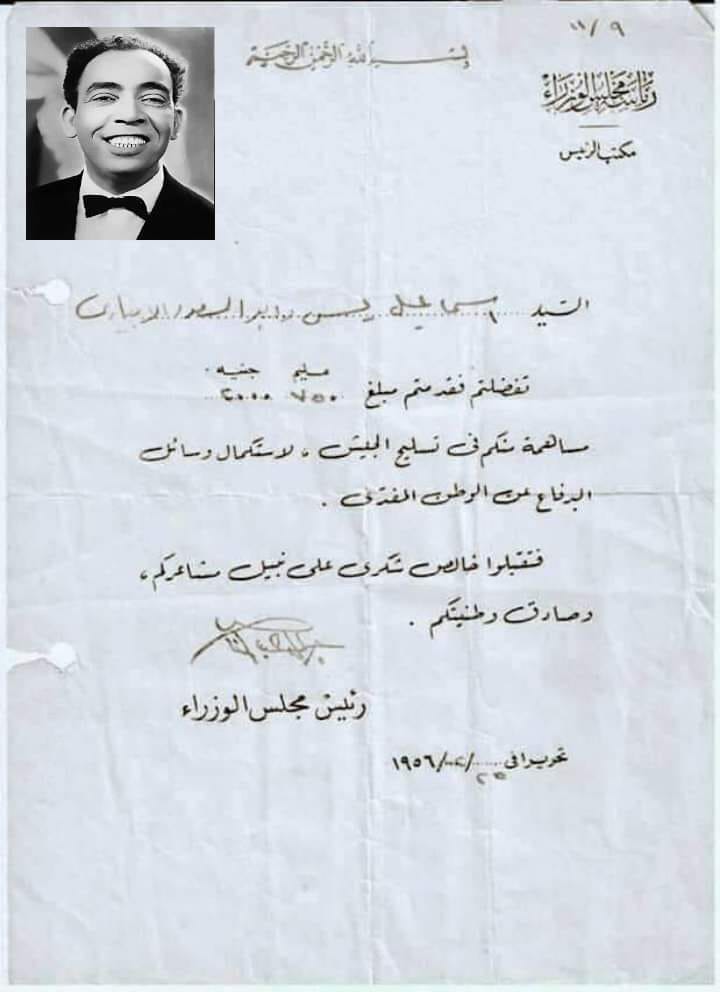 ١١/٩
بسم الله الرحمن الرحيم
رئاسة مجلس الوزراء
مكتب الرئيس
السيد اسماعيل يس وابو السعود الابيارى
مليم جنيه
تفضلتم فقدمتم مبلغ ٧٥٠
مساهمة منكم فى تسليح الجيش ، لاستكمال وسائل
الدفاع عن الوطن المفدى .
فتقبلوا خالص شكرى على نبيل مشاعركم ،
وصادق وطنيتكم .
رئيس مجلس الوزراء
تحريرا فى ٢٥/ /١٩٥٦